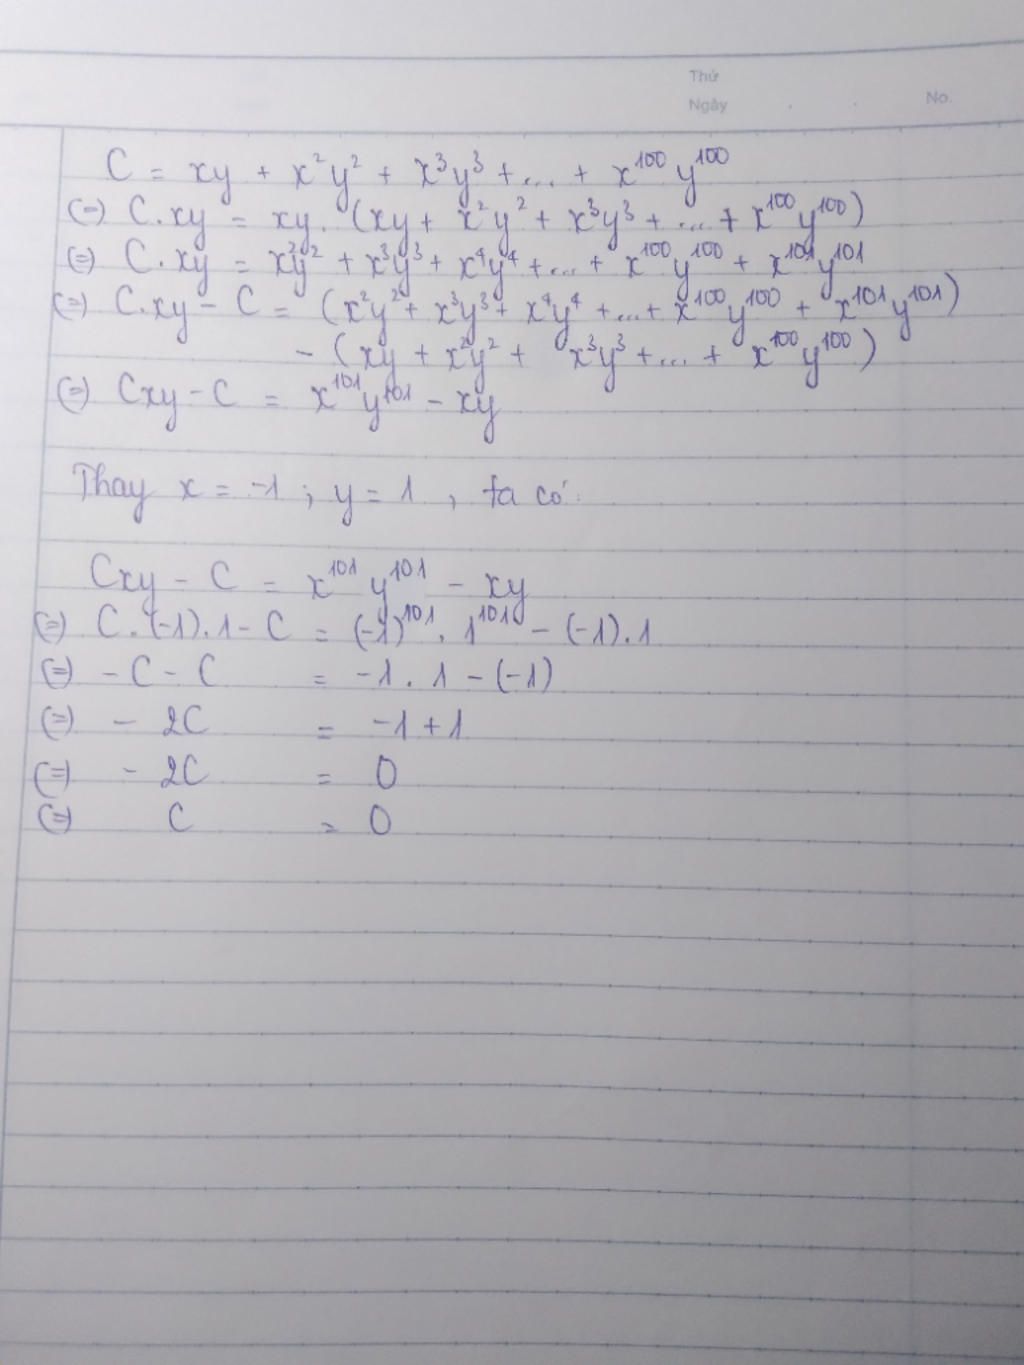 Thứ
Ngày No.
C = xy + x²y² + x³y³ + ... + x¹⁰⁰y¹⁰⁰
(=) C.xy = xy.(xy + x²y² + x³y³ + .... + x¹⁰⁰y¹⁰⁰)
(=) C.xy = x²y² + x³y³ + x⁴y⁴ + ... + x¹⁰⁰y¹⁰⁰ + x¹⁰¹y¹⁰¹
(=) C.xy - C = (x²y² + x³y³ + x⁴y⁴ + ... + x¹⁰⁰y¹⁰⁰ + x¹⁰¹y¹⁰¹)
- (xy + x²y² + x³y³ + ... + x¹⁰⁰y¹⁰⁰)
(=) Cxy - C = x¹⁰¹y¹⁰¹ - xy
Thay x = -1 ; y = 1 , ta có:
Cxy - C = x¹⁰¹y¹⁰¹ - xy
(=) C.(-1).1 - C = (-1)¹⁰¹.1¹⁰¹ - (-1).1
(=) -C - C = -1.1 - (-1)
(=) - 2C = -1 + 1
(=) - 2C = 0
(=) C = 0